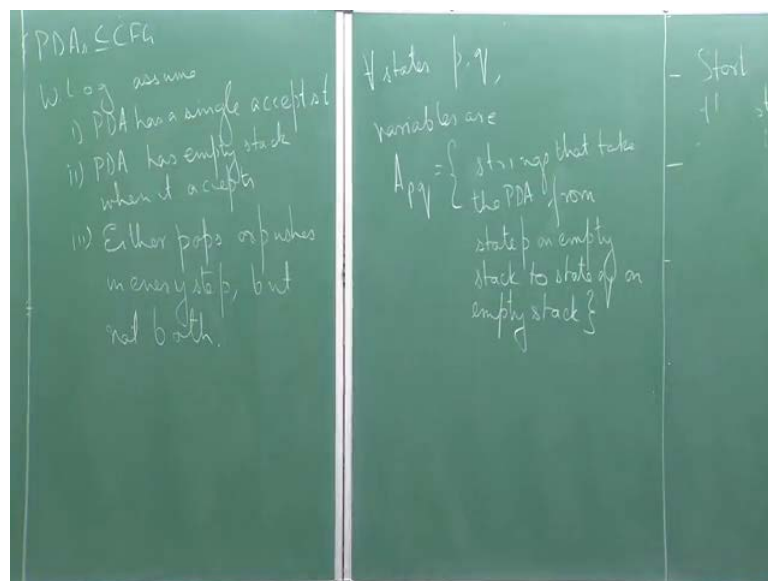 PDAs ⊆ CFG
W.Log assume
i) PDA has a single accept st
ii) PDA has empty stack
when it accepts
iii) Either pops or pushes
in every step, but
not both.
∀ states p, q,
variables are
A_pq = { strings that take
the PDA from
state p on empty
stack to state q on
empty stack }
- Start
-